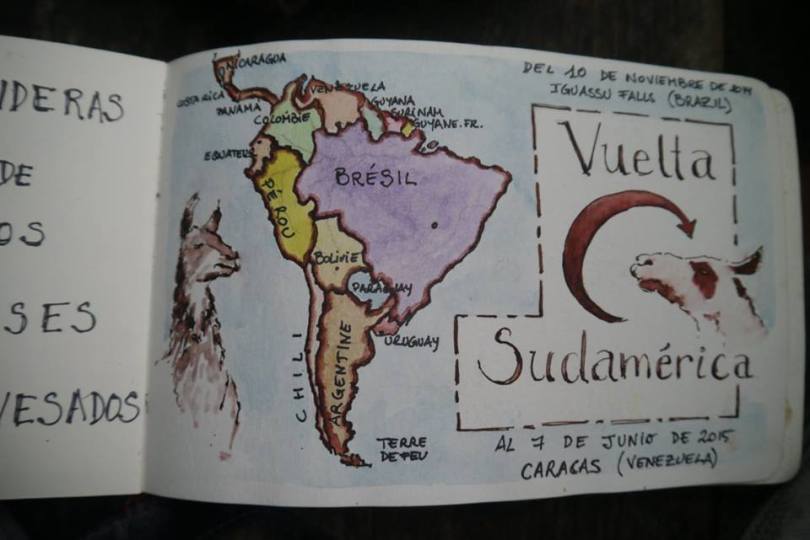 IDERAS
DE
OS
SES
VESADOS
NICARAGOA
COSTA RICA
PANAMÁ
VENEZUELA
COLOMBIE
GUYANA
SURINAM
GUYANE.FR.
EQUATEUR
PÉROU
BRÉSIL
BOLIVIE
PARAGUAY
CHILI
ARGENTINE
URUGUAY
TERRE
DE FEU
DEL 10 DE NOVIEMBRE DE 2014
IGUASSU FALLS (BRAZIL)
Vuelta
Sudamérica
AL 7 DE JUNIO DE 2015
CARACAS (VENEZUELA)